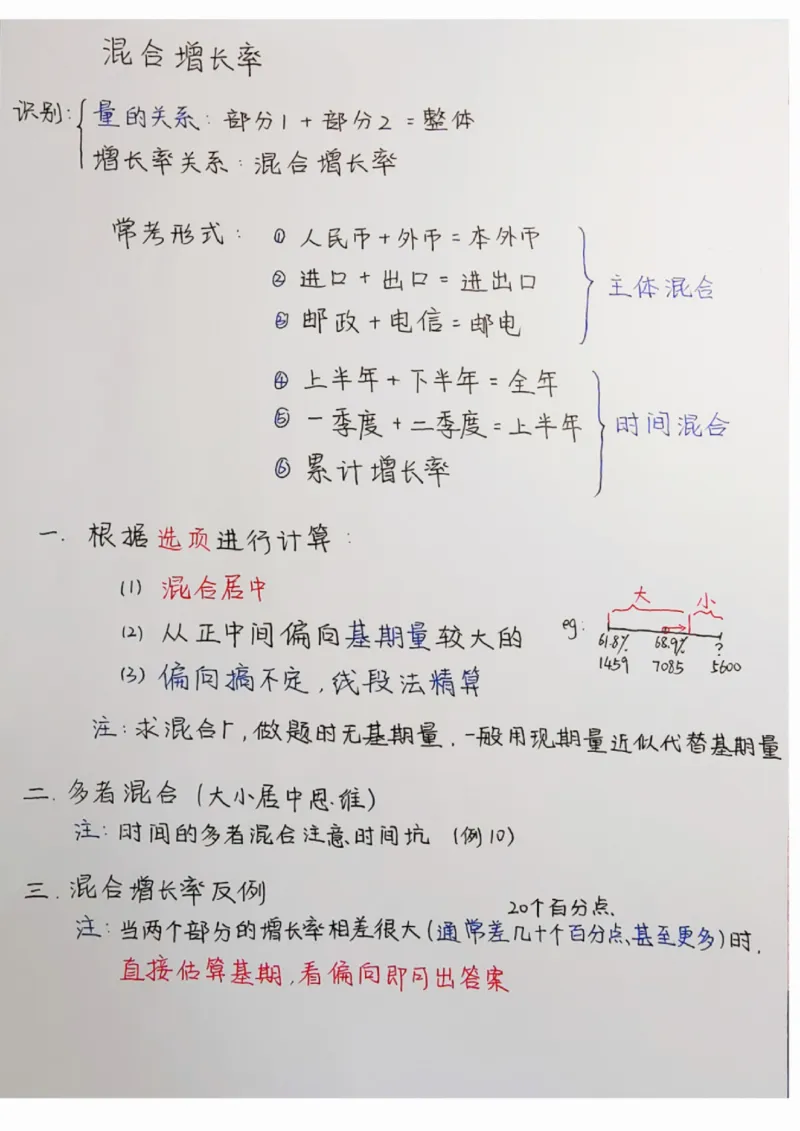 混合增长率
识别: 量的关系: 部分1 + 部分2 = 整体
增长率关系: 混合增长率
常考形式: ① 人民币 + 外币 = 本外币
② 进口 + 出口 = 进出口
主体混合
③ 邮政 + 电信 = 邮电
④ 上半年 + 下半年 = 全年
⑤ 一季度 + 二季度 = 上半年
时间混合
⑥ 累计增长率
一. 根据选项进行计算:
(1) 混合居中
(2) 从正中间偏向基期量较大的
(3) 偏向搞不定, 线段法精算
eg:
大 小
61.8% 68.9% ?
1459 7085 5600
注: 求混合r, 做题时无基期量. 一般用现期量近似代替基期量
二. 多者混合 (大小居中思维)
注: 时间的多者混合注意时间坑 (例10)
三. 混合增长率反例
20个百分点
注: 当两个部分的增长率相差很大(通常差几十个百分点、甚至更多)时,
直接估算基期, 看偏向即可出答案